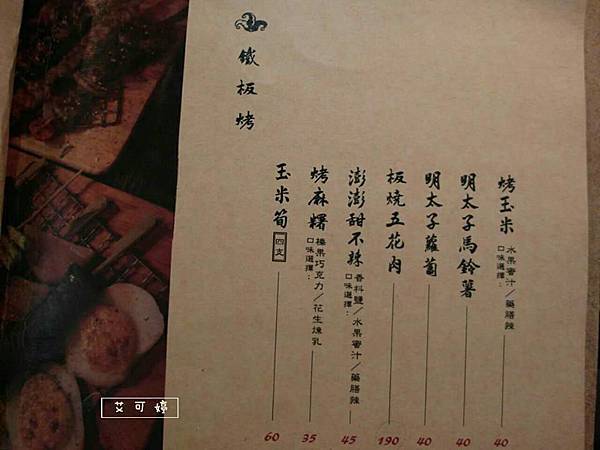 鐵板燒
烤玉米
口味選擇：
水果蜜汁／藥膳辣
40
明太子馬鈴薯
40
明太子蘿蔔
40
板燒五花肉
190
澎澎甜不辣
口味選擇：
香料鹽／水果蜜汁／藥膳辣
45
烤麻糬
口味選擇：
榛果巧克力／花生煉乳
35
玉米筍 四支
60
艾可婷